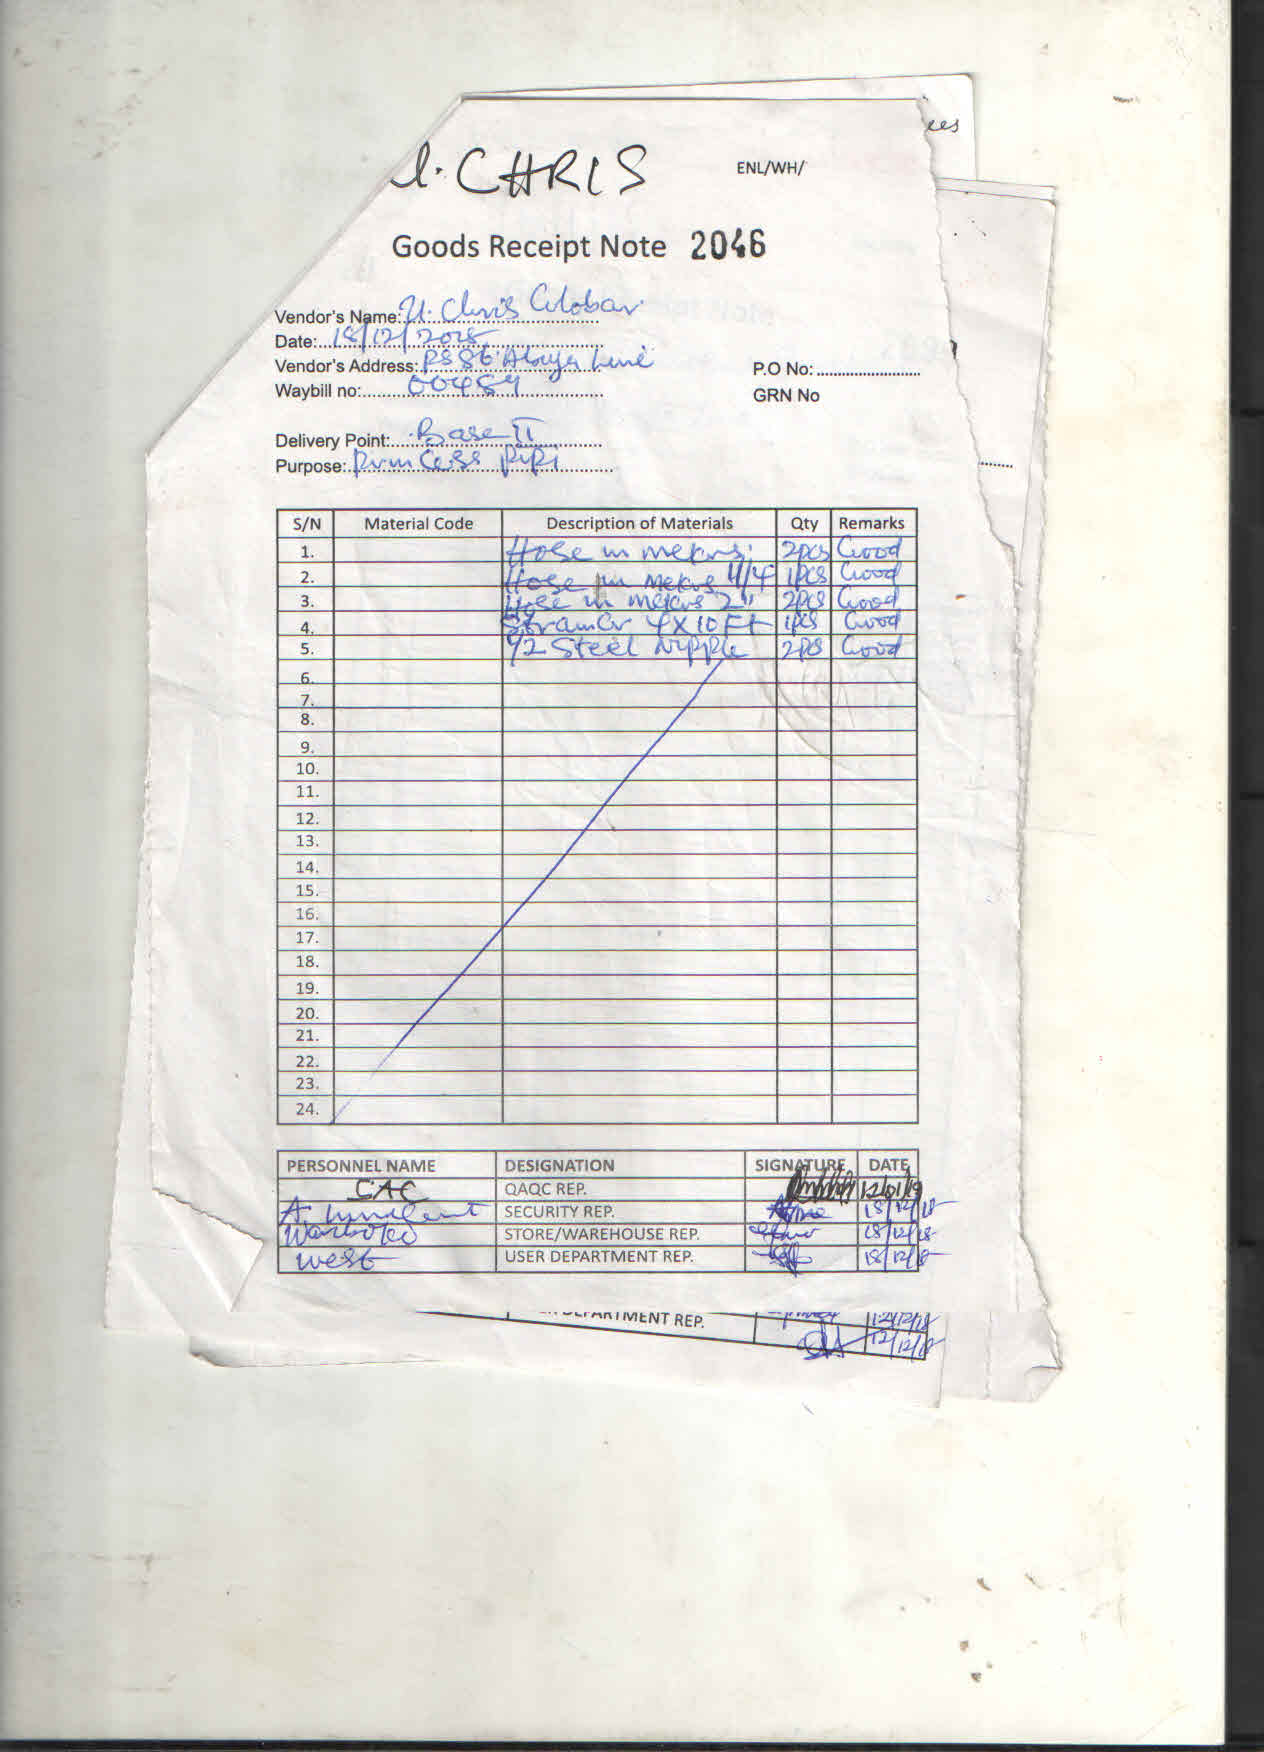 U. CHRIS
ENL/WH/
Goods Receipt Note 2046
Vendor's Name: U. Chris Global
Date: 18/12/2018
Vendor's Address: Abuja Line
P.O No:
Waybill no: 00489
GRN No
Delivery Point: Base II
Purpose: Princess Pipi
S/N Material Code Description of Materials Qty Remarks
1. Hose in meters 2pcs Good
2. Hose in meters 1 1/4 1pcs Good
3. Hose in meters 2" 2pcs Good
4. Strainer 4X10Ft 1pcs Good
5. 1/2 Steel Nipple 2pcs Good
6.
7.
8.
9.
10.
11.
12.
13.
14.
15.
16.
17.
18.
19.
20.
21.
22.
23.
24.
PERSONNEL NAME DESIGNATION SIGNATURE DATE
QAQC REP. 12/01/19
A. Innocent SECURITY REP. 18/12/18
Wariboko STORE/WAREHOUSE REP. 18/12/18
West USER DEPARTMENT REP. 18/12/18
DEPARTMENT REP. 12/12/18
12/12/18